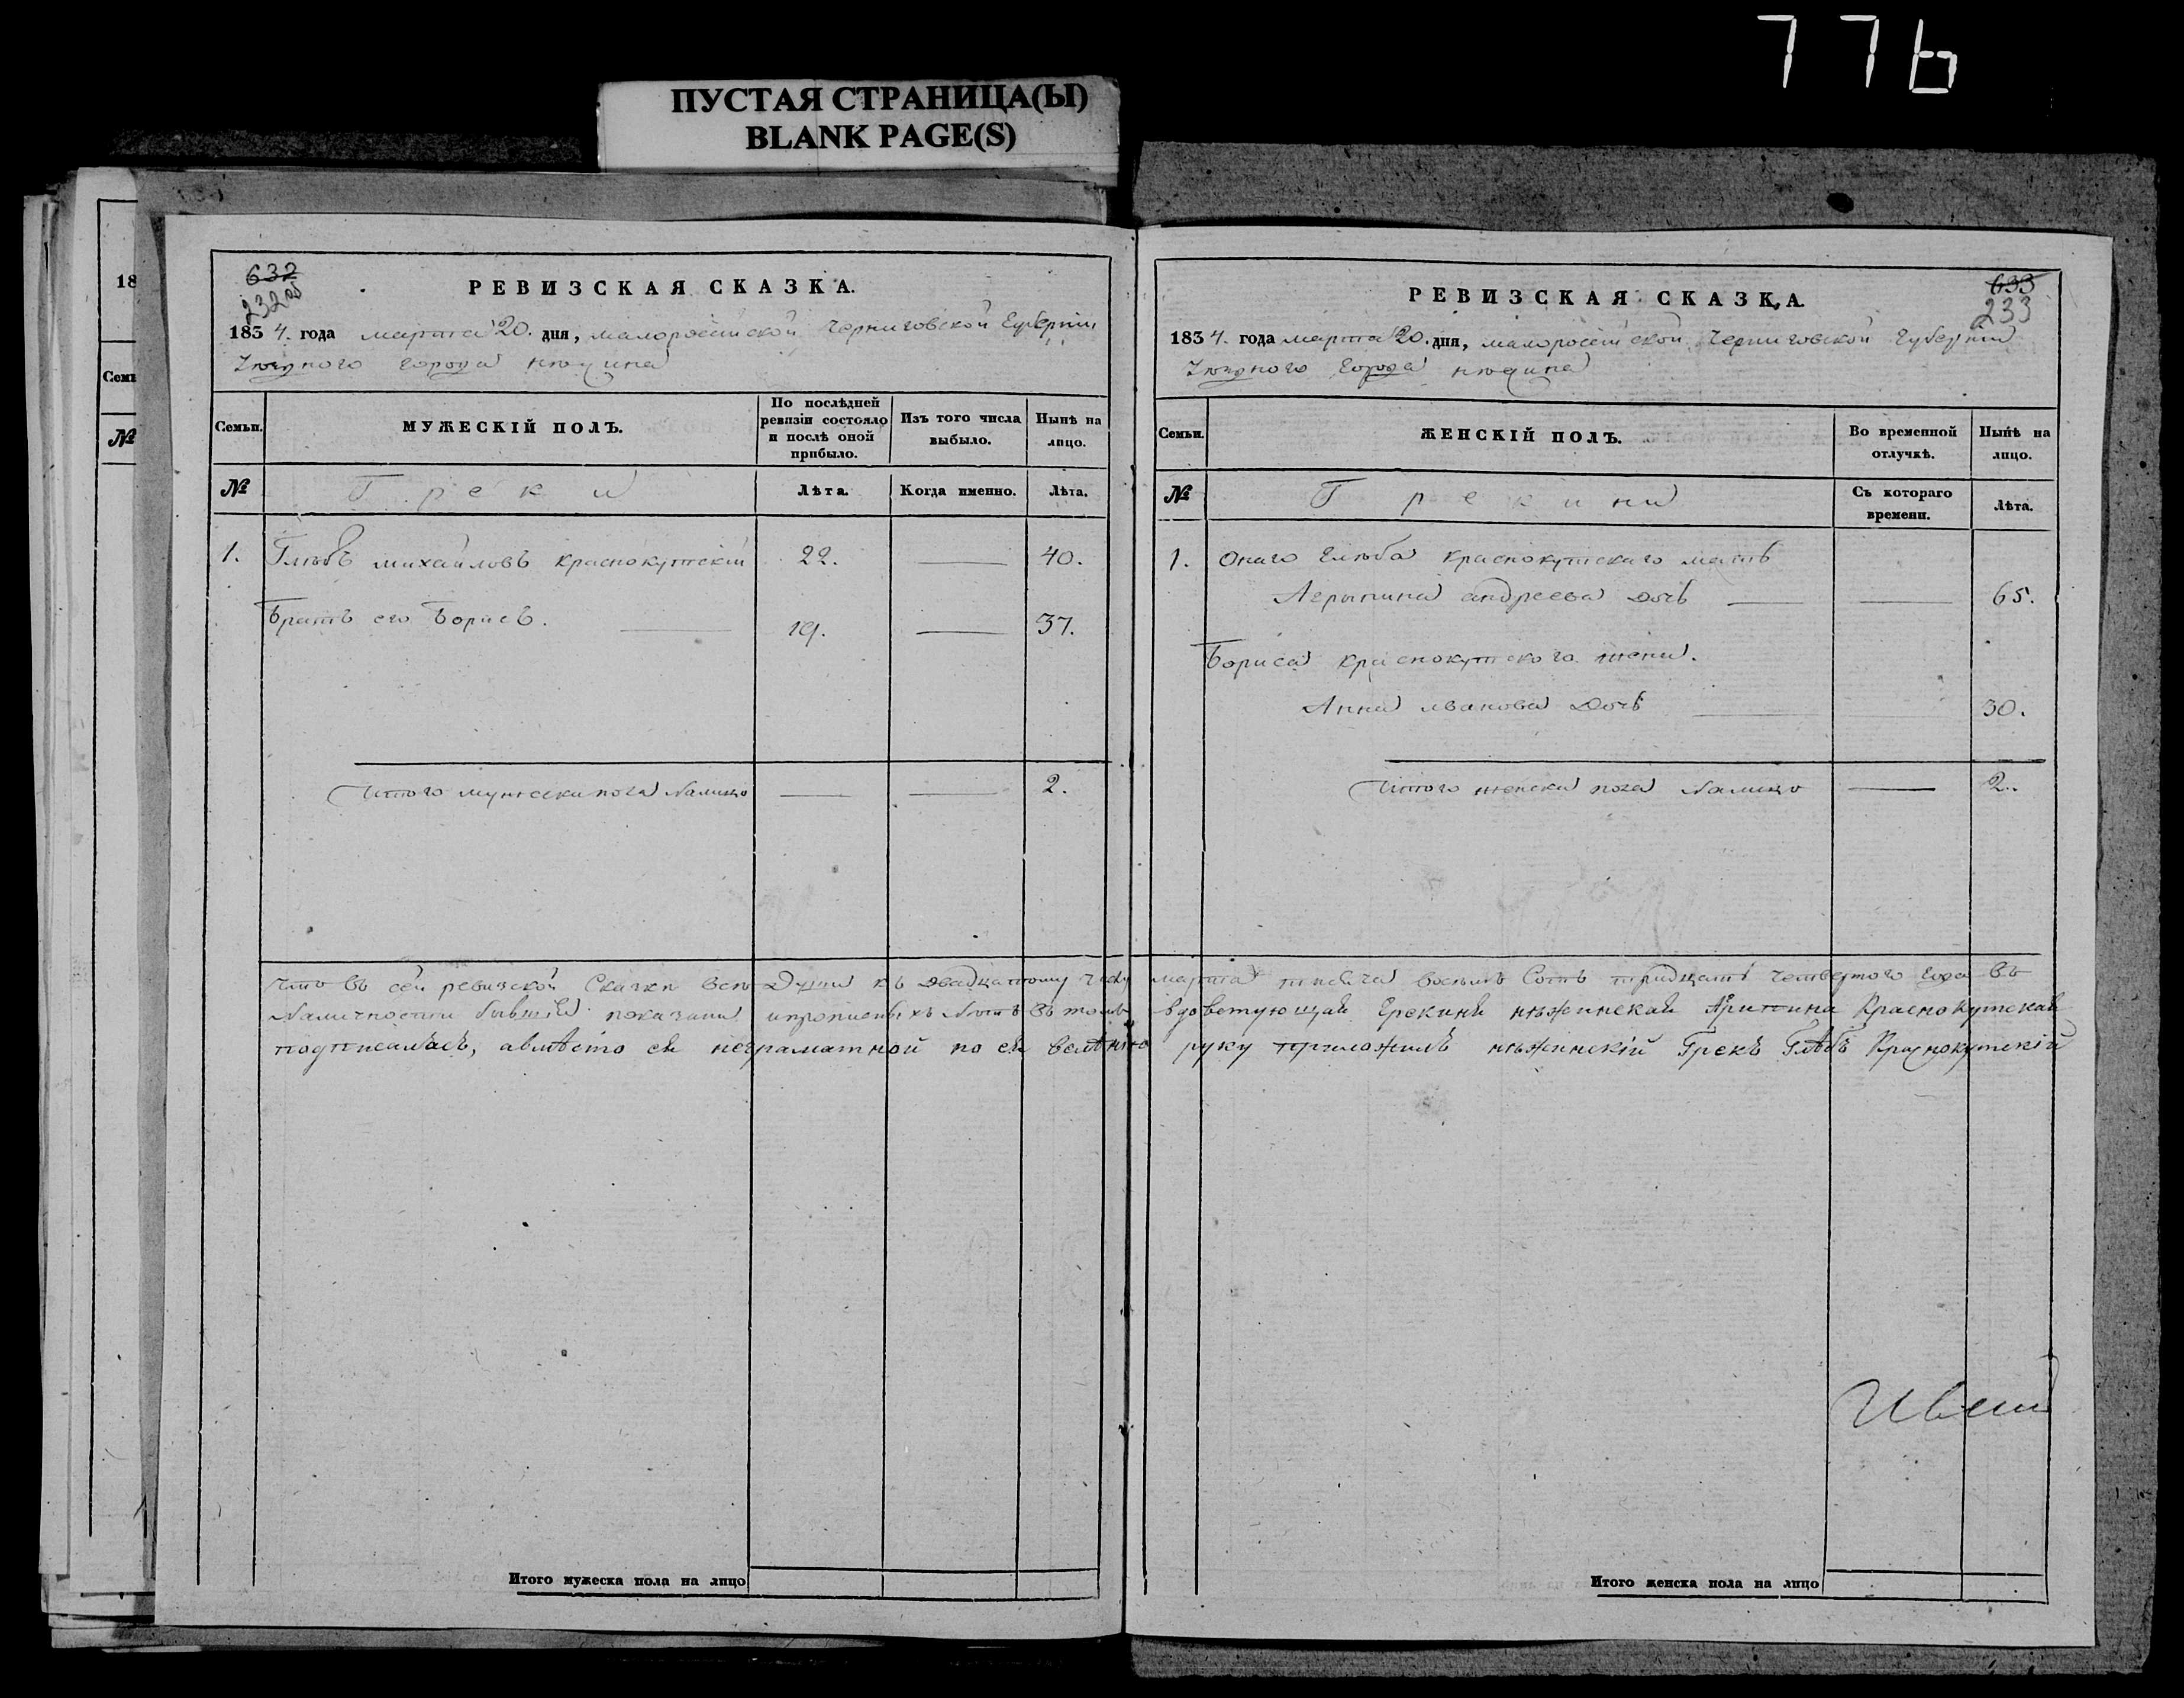 776
ПУСТАЯ СТРАНИЦА(Ы)
BLANK PAGE(S)
18
Семь
№
632
232 об
РЕВИЗСКАЯ СКАЗКА.
1834. года марта 20. дня, малоросейской Черниговской Губернии
города нюжина
Семьи.
МУЖЕСКІЙ ПОЛЪ.
По послѣдней ревизіи состояло и послѣ оной прибыло.
Изъ того числа выбыло.
Нынѣ на лицо.
№
Греки
Лѣта.
Когда именно.
Лѣта.
1. Глюбъ михайловъ краснокутскій 22. — 40.
Братъ его Борисъ. — 19. — 37.
Итого мужеска пола Налицо — — 2.
Итого мужеска пола на лицо
633
233
РЕВИЗСКАЯ СКАЗКА.
1834. года марта 20. дня, малоросейской Черниговской Губернии
города нюжина
Семьи.
ЖЕНСКІЙ ПОЛЪ.
Во временной отлучкѣ.
Нынѣ на лицо.
№
Грекини
Съ котораго времени.
Лѣта.
1. Онаго Глюба краснокутскаго мать
Агрыпина андреева Дочь — — 65.
Бориса краснокутского жена.
Анна иванова Дочь — 30.
Итого женска пола Налицо — 2.
Что въ сей ревизской Сказки всѣ Души къ двадцатому числу марта тысяча восемь Сотъ тридцать четвертого Года въ
Наличности бывшіе показани и прописныхъ Нютъ въ томъ вдовствующая Грекиня нѣжинская Арипина Краснокутская
подписалась, авмѣсто ея неграматной по ея велѣнію руку приложилъ нѣжинскій Грекъ Глѣбъ Краснокутскій
Итого женска пола на лицо